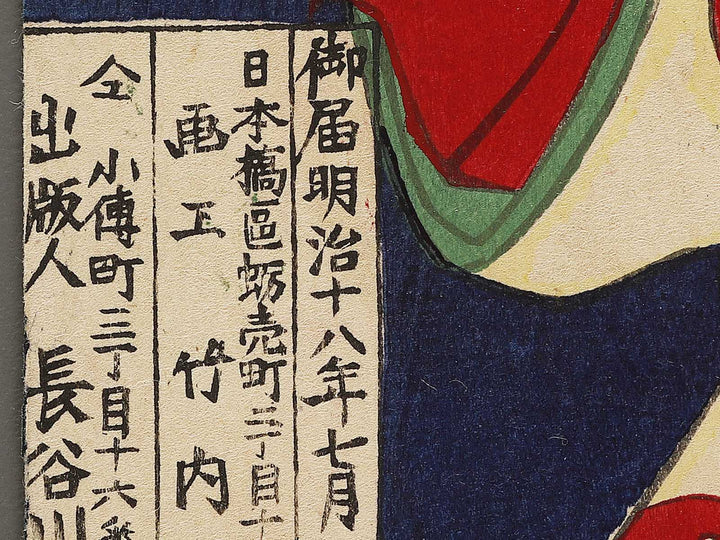 御届明治十八年七月
日本橋區蛎売町三丁目十
画工 竹内
仝 小傳町三丁目十六番
出版人 長谷川